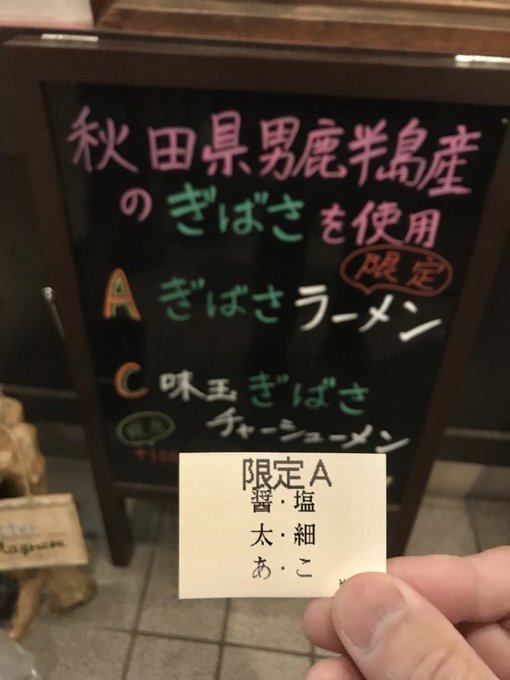 秋田県男鹿半島産
の ぎばさ を使用
限定
A ぎばさラーメン
C 味玉ぎばさ
チャーシューメン
限定A
醤・塩
太・細
あ・こ